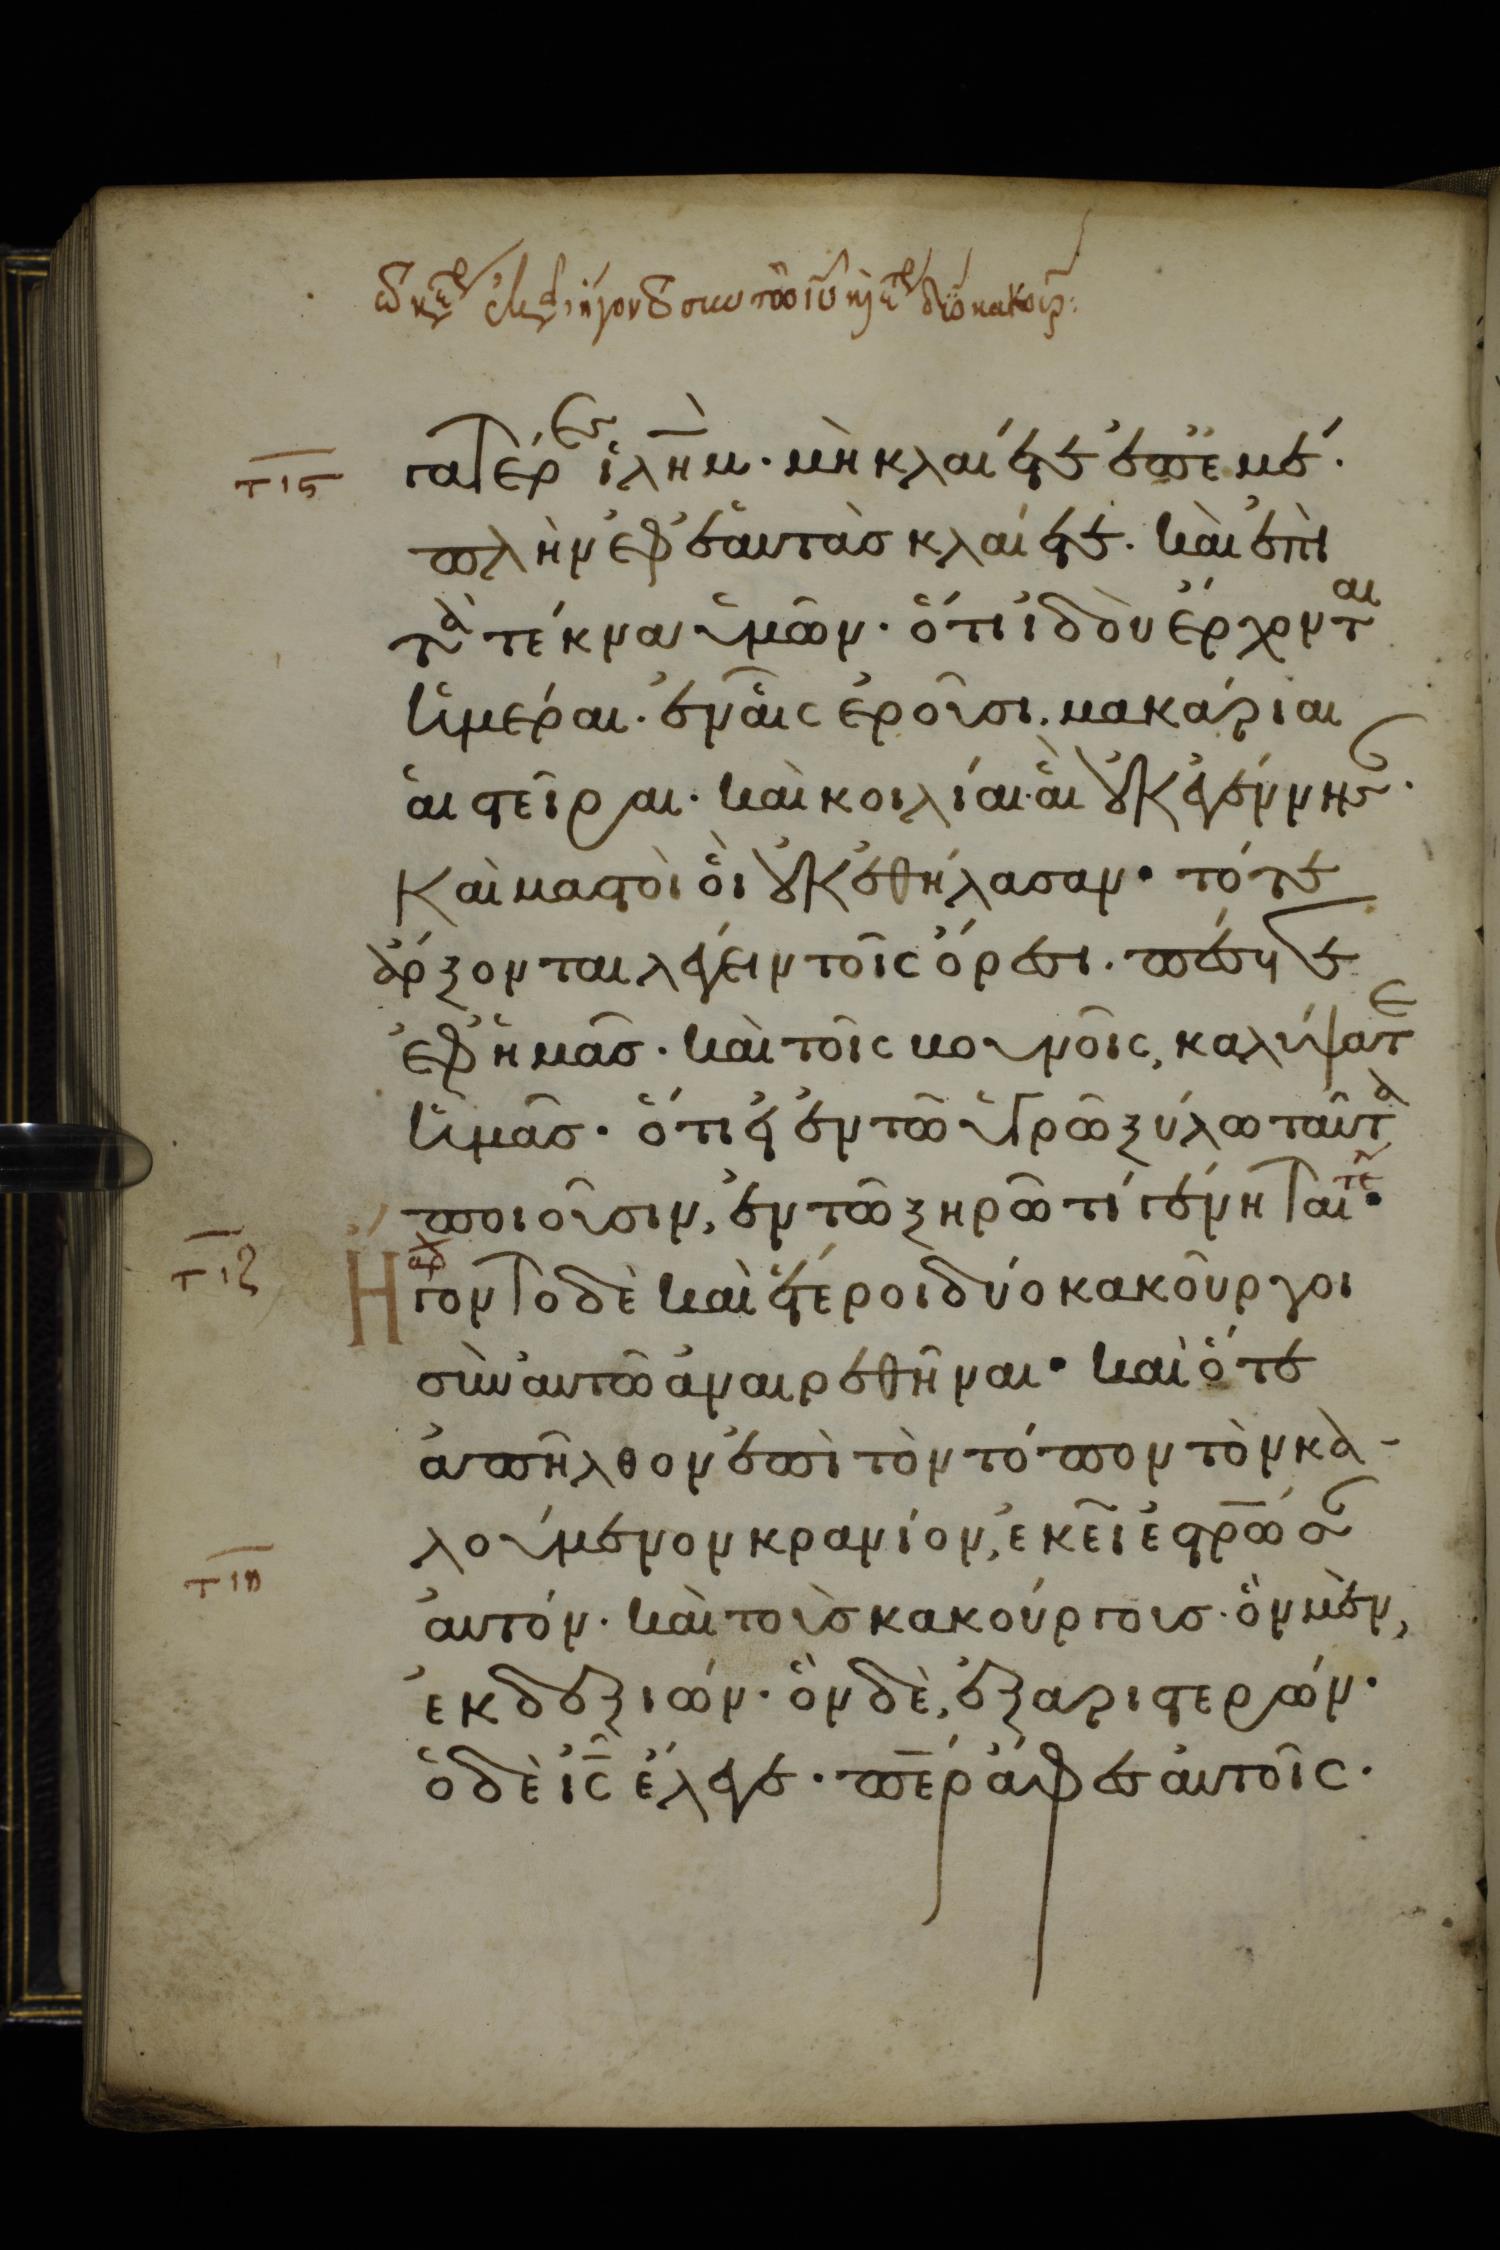 τῶ καιρῶ ἐκείνω ἤγοντο σὺν τῶ ιυ καὶ ἕτεροι δύο κακοῦργοι:
τις
γατέρες ἱλῆμ· μὴ κλαίετε ἐπ ἐμέ·
πλὴν ἐφ ἑαυτὰσ κλαίετε· καὶ ἐπὶ
τὰ τέκνα ὑμῶν· ὅτι ἰδοὺ ἔρχονται
ἡμέραι· ἐν αἷς ἐροῦσι· μακάριαι
αἱ στεῖραι· καὶ κοιλίαι· αἳ οὐκ ἐγέννησαν·
καὶ μαστοὶ οἳ οὐκ ἐθήλασαν· τότε
ἄρξονται λέγειν τοῖς ὄρεσι· πέσετε
ἐφ ἡμᾶσ· καὶ τοῖς βουνοῖς, καλύψατε
ἡμᾶσ· ὅτι εἰ ἐν τῶ ὑγρῶ ξύλω ταῦτα
ποιοῦσιν, ἐν τῶ ξηρῶ τί γένηται· τε
τιζ
αρχ
Ἤγοντο δὲ καὶ ἕτεροι δύο κακοῦργοι
σὺν αυτῶ ἀναιρεθῆναι· καὶ ὅτε
ἀπῆλθον ἐπὶ τὸν τόπον τὸν κα-
λούμενον κρανίον, ἐκεῖ ἐστρωσαν
τιη
αυτόν· καὶ τοὺσ κακούργουσ· ὃν μὲν,
ἐκ δεξιῶν· ὃν δὲ, ἐξ αριστερῶν·
ὁ δὲ ις ἔλεγε· περ ἄφεσ αυτοῖς·